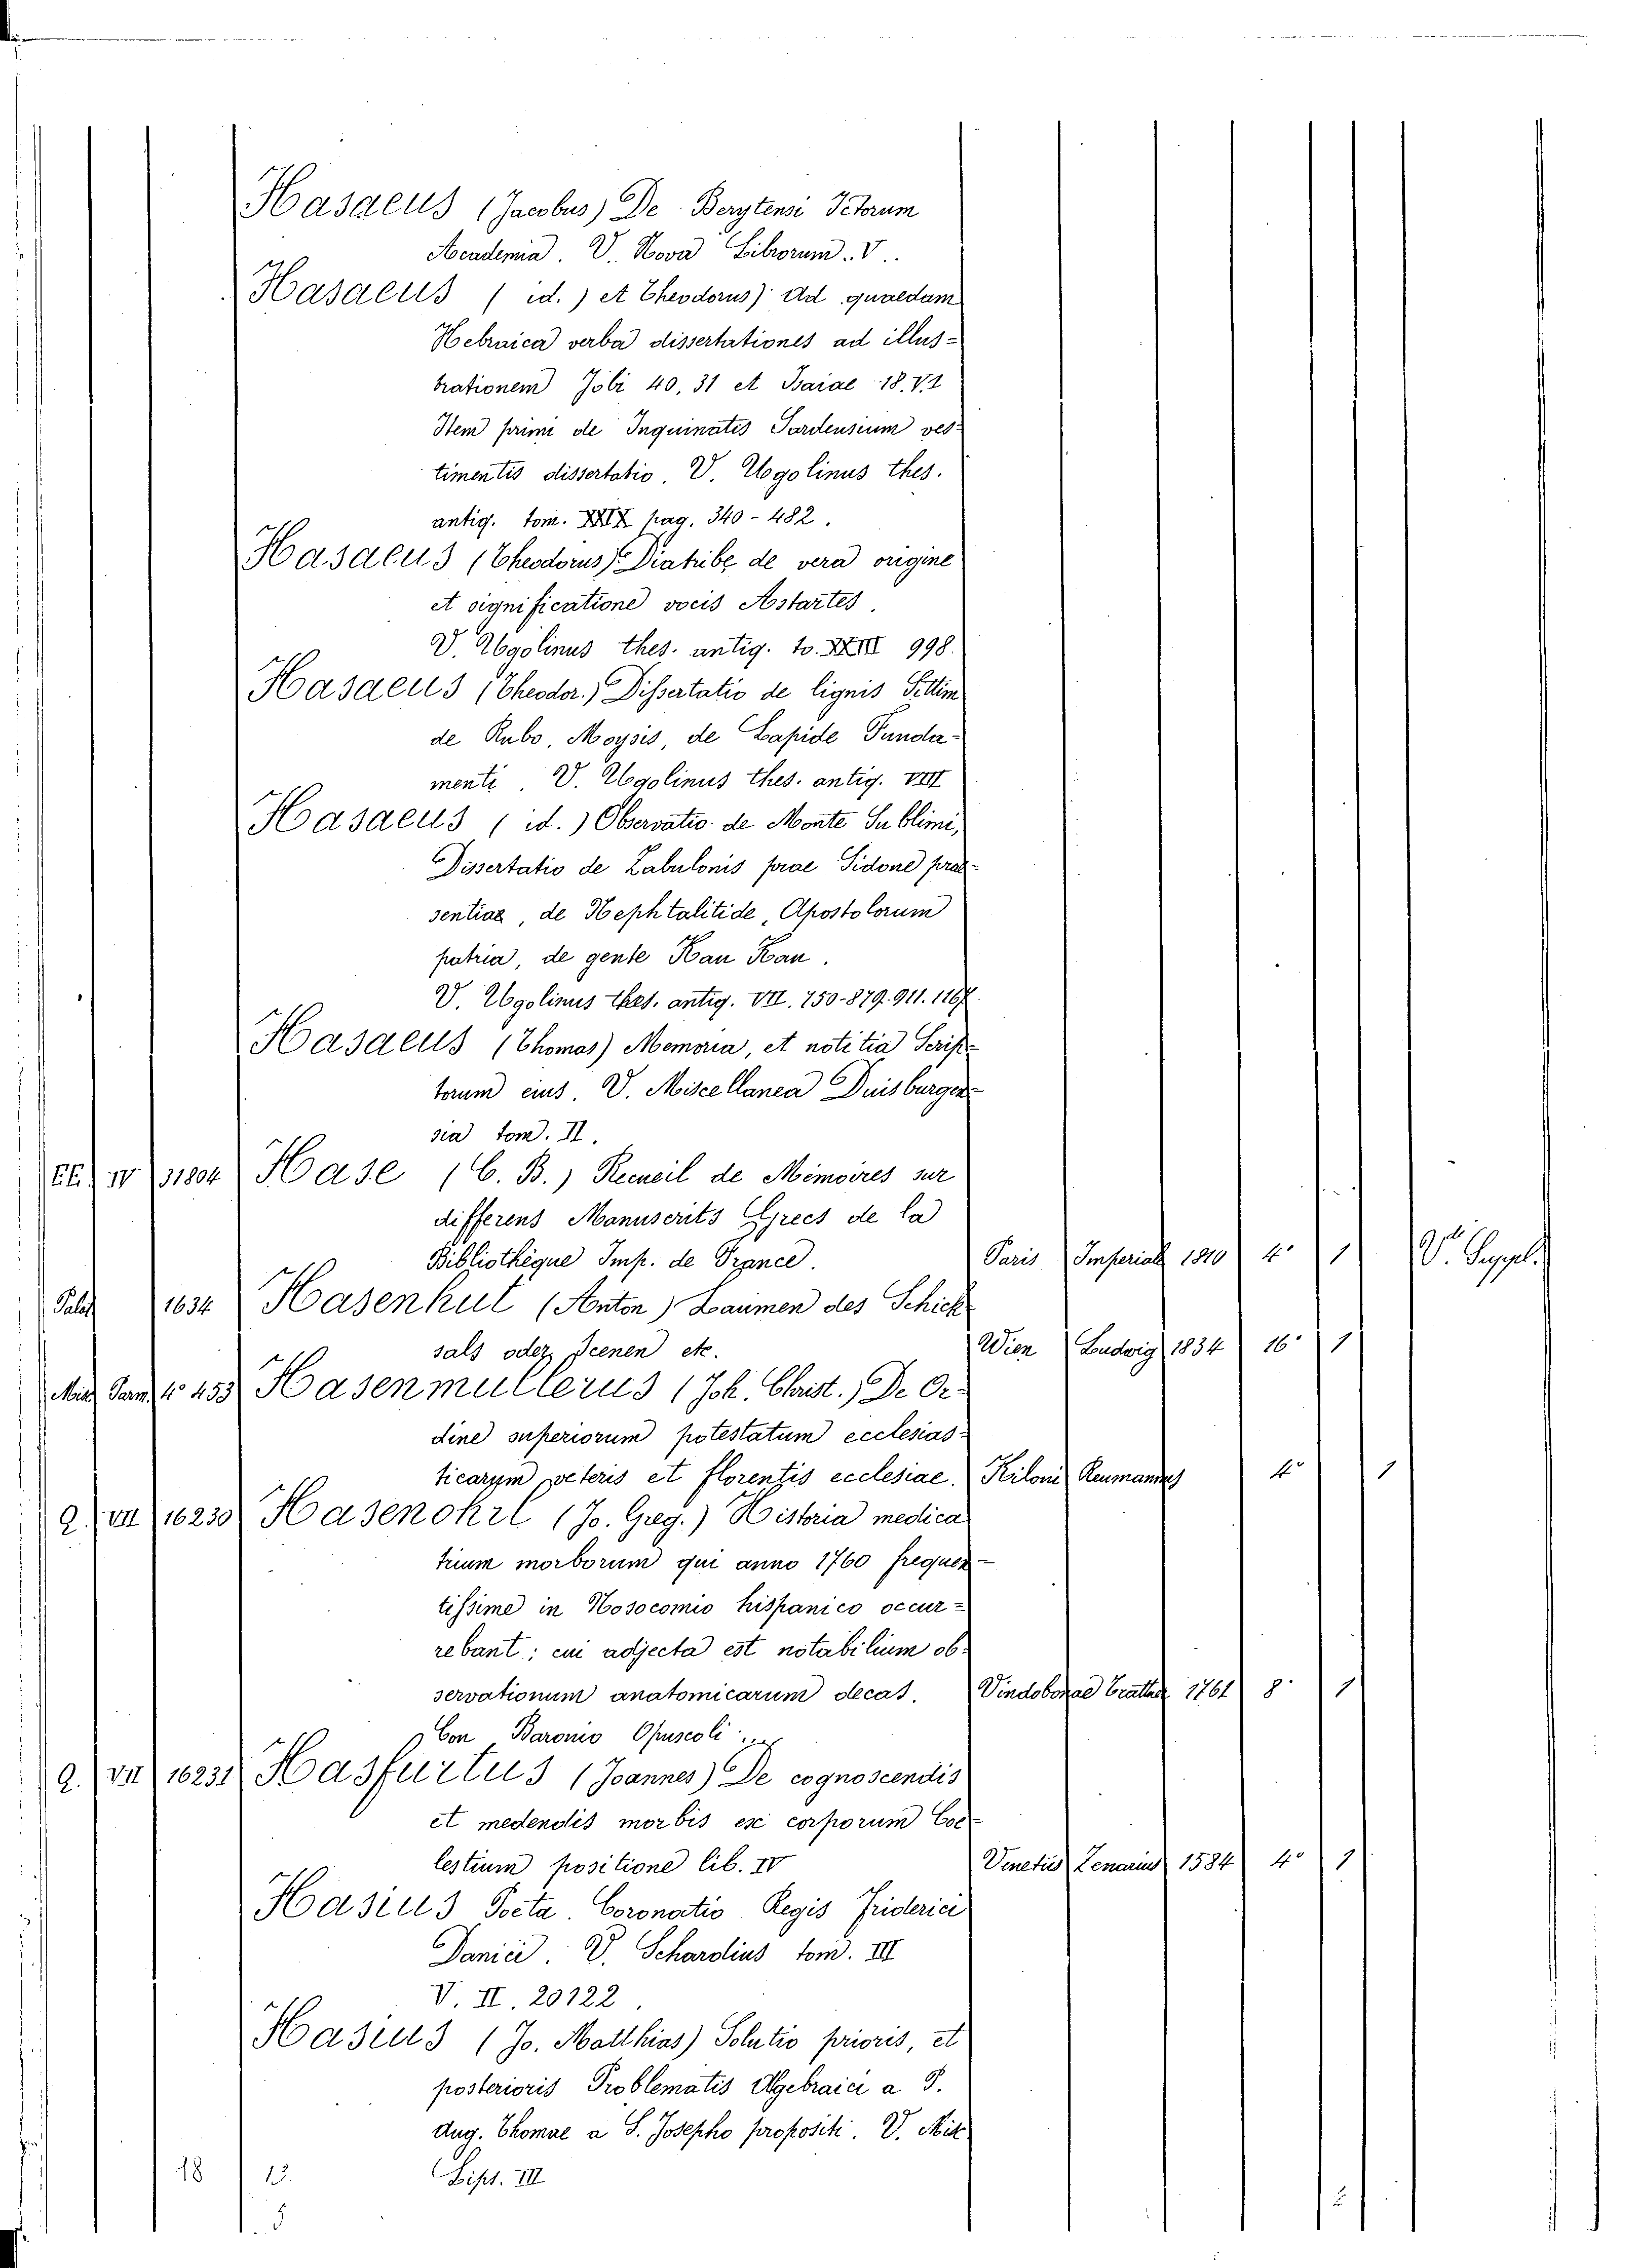 Hasaeus (Jacobus) De Berytensi Ictorum
Academia. V. Nova Librorum. V.
Hasaeus ( id. ) et Theodorus) Ad quaedam
Hebraica verba dissertationes ad illus-
trationem Jobi 40. 31 et Isaiae 18. V.1
Item primi de Inquinatis Sardensium ves-
timentis dissertatio. V. Ugolinus thes.
antiq. tom. XXIX pag. 340 - 482.
Hasaeus (Theodorus) Diatribe de vera origine
et significatione vocis Astartes.
V. Ugolinus thes. antiq. to. XXIII 998.
Hasaeus (Theodor.) Dissertatio de lignis Sittim
de Rubo, Moysis, de Lapide Funda-
menti. V. Ugolinus thes. antiq. VIII
Hasaeus ( id. ) Observatio de Monte Sublimi,
Dissertatio de Zabulonis prae Sidone prae-
sentiae, de Nephtalitide, Apostolorum
patria, de gente Kau Kau.
V. Ugolinus thes. antiq. VII. 750-879. 911. 1167.
Hasaeus (Thomas) Memoria, et notitia Scrip-
torum eius. V. Miscellanea Duisburgen-
sia tom. II.
EE. IV 31804 Hase (C. B.) Recueil de Mémoires sur
differens Manuscrits Grecs de la
Bibliothèque Imp. de France. Paris Imperial 1810 4° 1 Vi Suppel.
Palat 1634 Hasenhut (Anton) Launen des Schick-
sals oder Scenen etc. Wien Ludwig 1834 16° 1
Misc. Parm. 4° 453 Hasenmullerus (Joh. Christ.) De Or-
dine superiorum potestatum ecclesias-
ticarum veteris et florentis ecclesiae. Kiloni Reumannus 4° 1
Q. VII 16230 Hasenohrl (Jo. Greg.) Historia medica
trium morborum qui anno 1760 frequen-
tissime in Nosocomio hispanico occur-
rebant; cui adjecta est notabilium ob-
servationum anatomicarum decas. Vindobonae Trattner 1761 8° 1
Con Baronio Opuscoli
Q. VII 16231 Hasfurtus (Joannes) De cognoscendis
et medendis morbis ex corporum Coe-
lestium positione lib. IV Venetiis Zenarius 1584 4° 1
Hasius Poeta. Coronatio Regis Friderici
Danici. V. Schardius tom. III
V. II. 20122.
Hasius (Jo. Matthias) Solutio prioris, et
posterioris Problematis Algebraici a P.
Aug. Thomae a S. Josepho propositi. V. Misc
Lips. III
18 13.
5 2